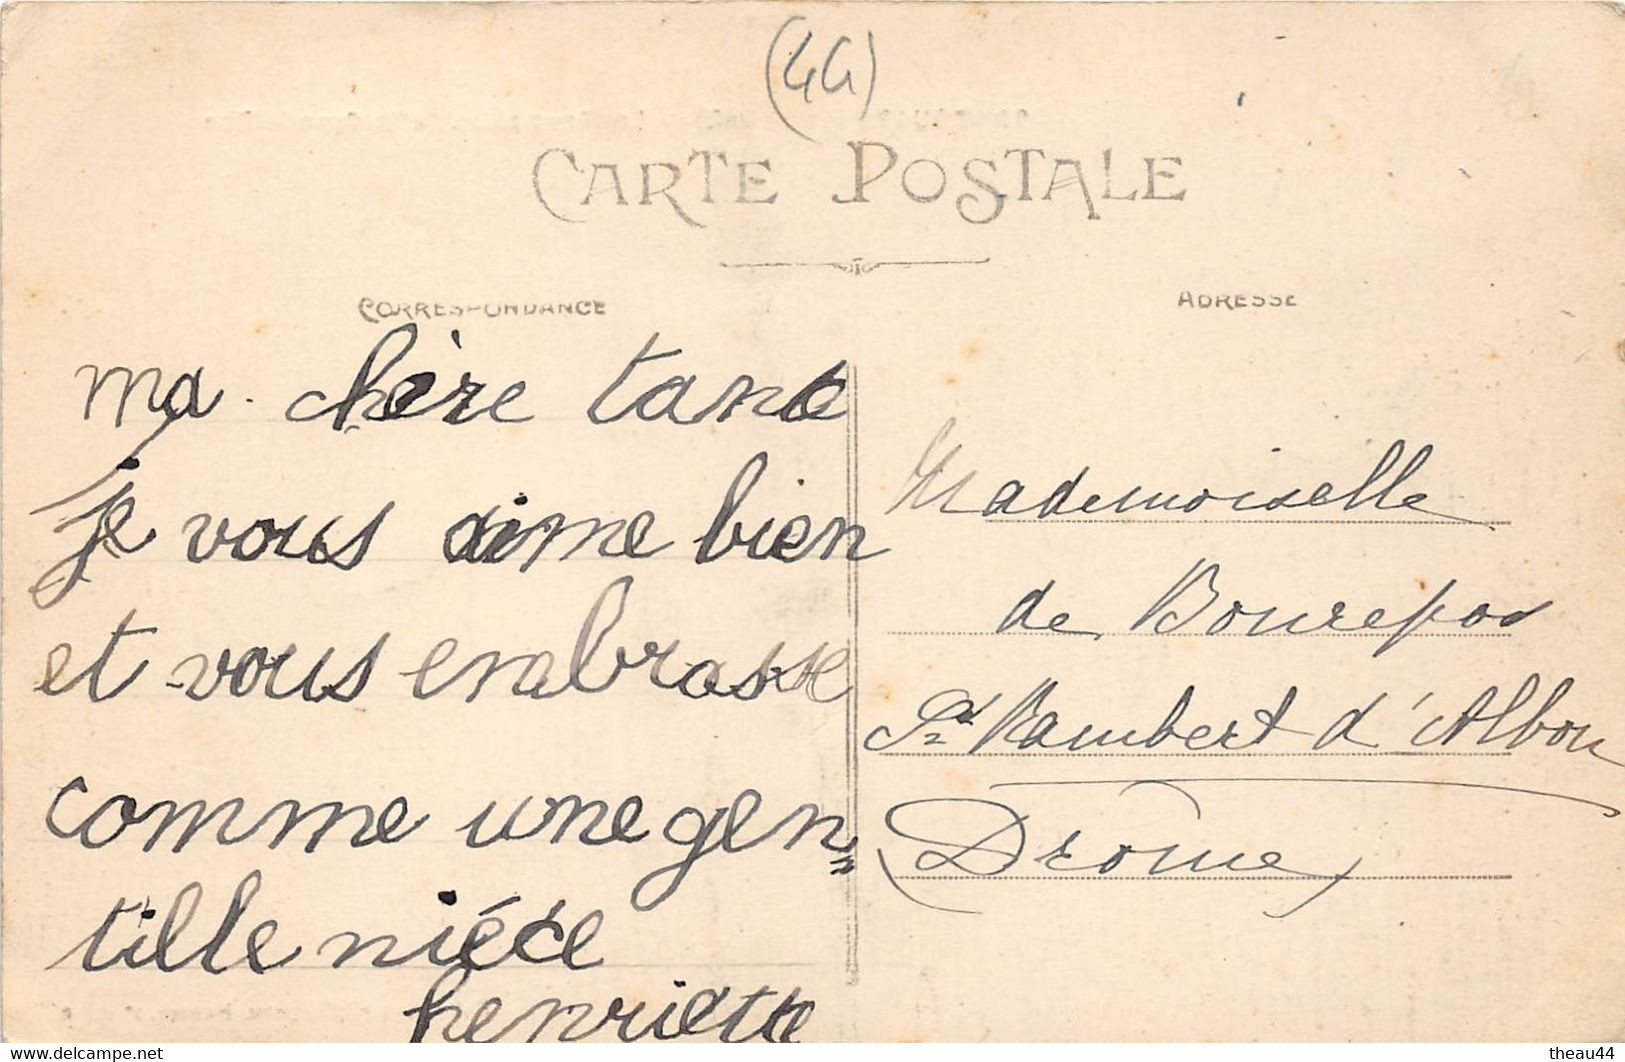 (44)
CARTE POSTALE
CORRESPONDANCE
ma chère tante
je vous aime bien
et vous embrasse
comme une gen=
tille niéce
henriette
ADRESSE
Mademoiselle
de Bourepos
St Rambert d'Albon
Drôme
www.delcampe.net
theau44